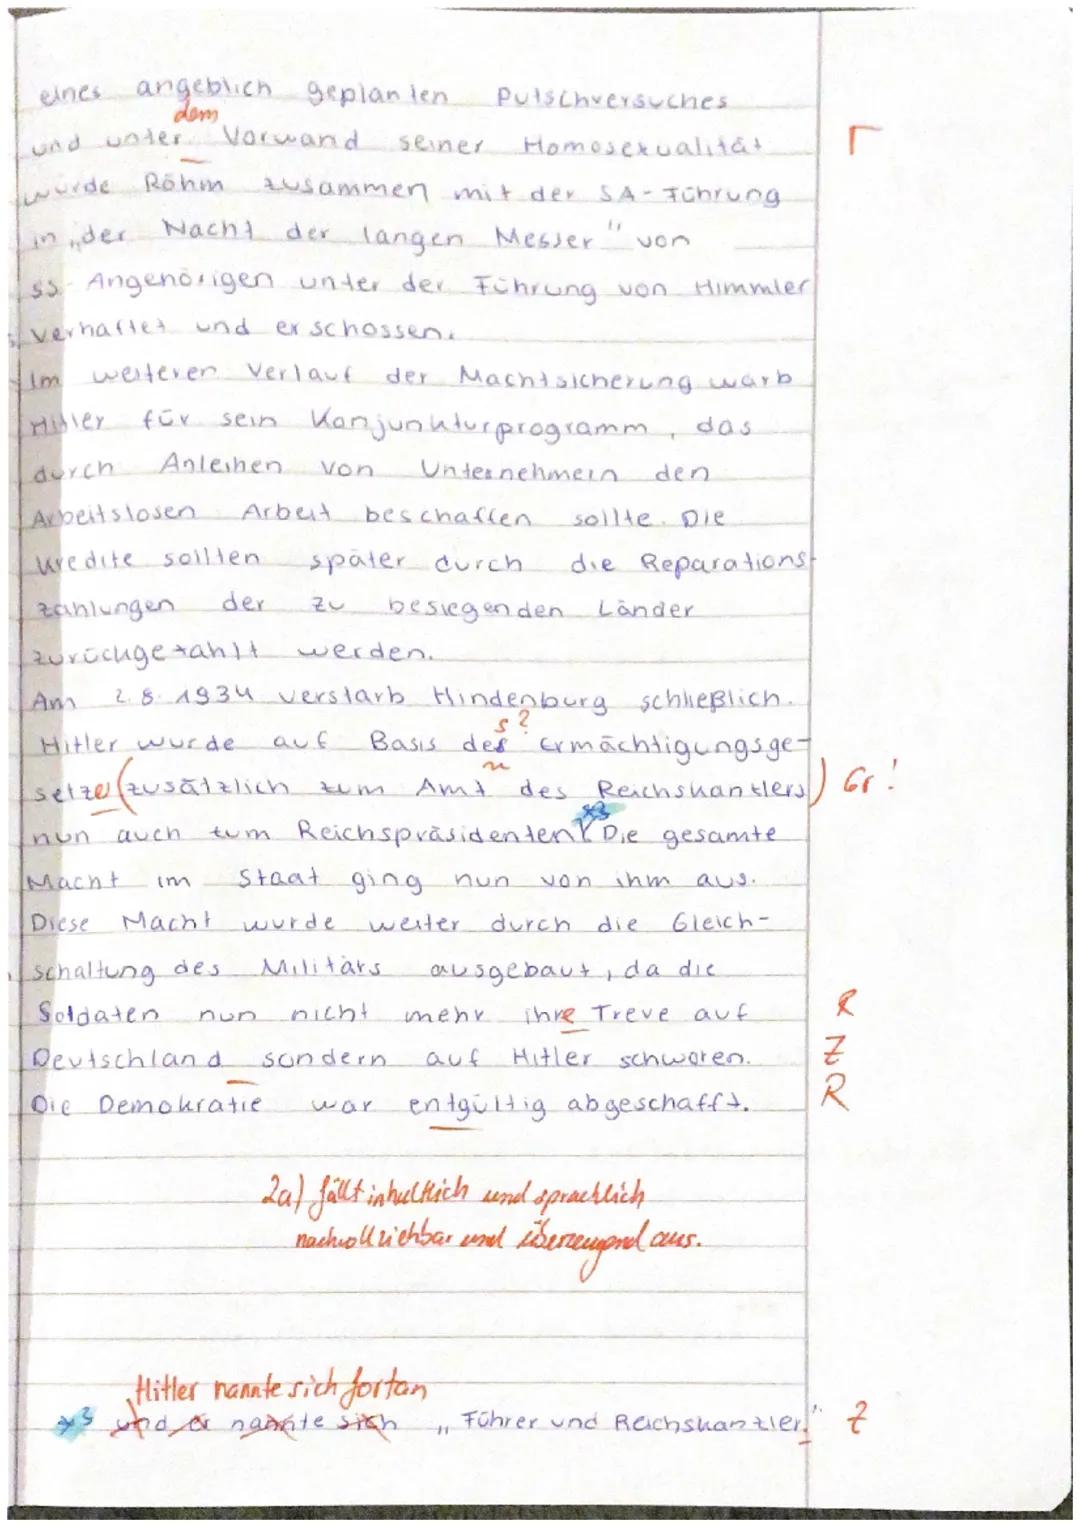 eines angeblich geplanten Putschversuches
dem
und unter Vorwand seiner Homosexualität Γ
wurde Röhm zusammen mit der SA-Führung
in „der Nacht der langen Messer" von
SS-Angehörigen unter der Führung von Himmler
verhaftet und erschossen.
Im weiteren Verlauf der Machtsicherung warb
Hitler für sein Konjunkturprogramm, das
durch Anleihen von Unternehmern den
Arbeitslosen Arbeit beschaffen sollte. Die
Kredite sollten später durch die Reparations-
zahlungen der zu besiegenden Länder
zurückgezahlt werden.
Am 2.8.1934 verstarb Hindenburg schließlich.
s?
Hitler wurde auf Basis des Ermächtigungsge-
n
setzes (zusätzlich zum Amt des Reichskanzlers) Gr!
*3
nun auch zum Reichspräsidenten. Die gesamte
Macht im Staat ging nun von ihm aus.
Diese Macht wurde weiter durch die Gleich-
schaltung des Militärs ausgebaut, da die
Soldaten nun nicht mehr ihre Treue auf R
Deutschland sondern auf Hitler schworen. Z
Die Demokratie war entgültig abgeschafft. R
2a) fällt inhaltlich und sprachlich
nachvollziehbar und überzeugend aus.
Hitler nannte sich fortan
*3 und er nannte sich „Führer und Reichskanzler." Z